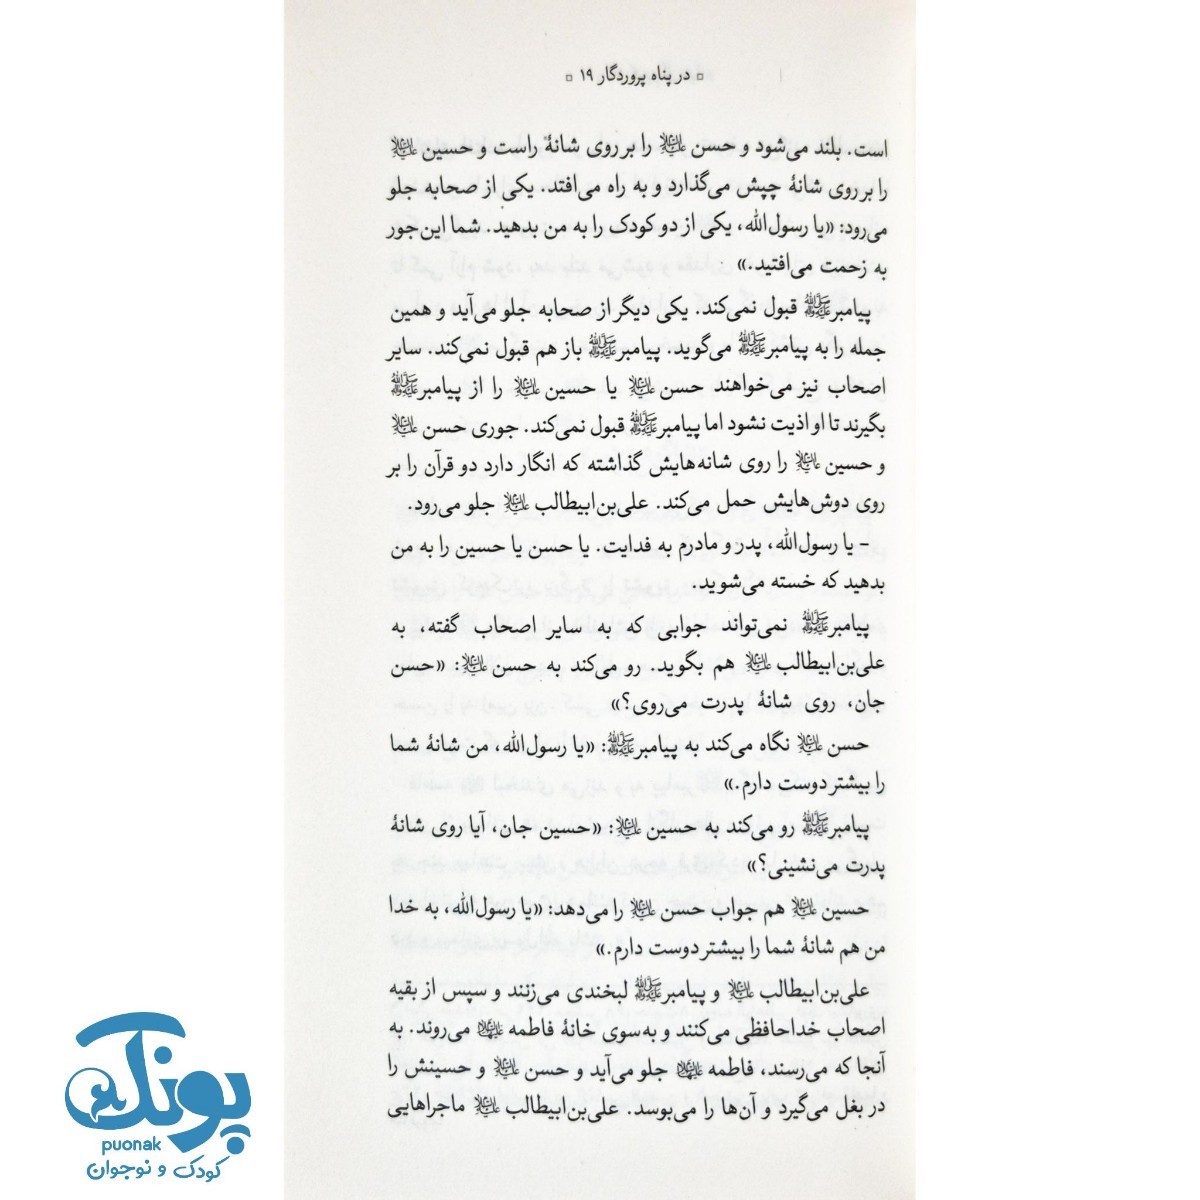 ▫ در پناه پروردگار ۱۹ ▫
است. بلند می‌شود و حسن علیه‌السلام را بر روی شانهٔ راست و حسین علیه‌السلام
را بر روی شانهٔ چپش می‌گذارد و به راه می‌افتد. یکی از صحابه جلو
می‌رود: «یا رسول‌الله، یکی از دو کودک را به من بدهید. شما این‌جور
به زحمت می‌افتید.»
پیامبرﷺ قبول نمی‌کند. یکی دیگر از صحابه جلو می‌آید و همین
جمله را به پیامبرﷺ می‌گوید. پیامبرﷺ باز هم قبول نمی‌کند. سایر
اصحاب نیز می‌خواهند حسن علیه‌السلام یا حسین علیه‌السلام را از پیامبرﷺ
بگیرند تا او اذیت نشود اما پیامبرﷺ قبول نمی‌کند. جوری حسن علیه‌السلام
و حسین علیه‌السلام را روی شانه‌هایش گذاشته که انگار دارد دو قرآن را بر
روی دوش‌هایش حمل می‌کند. علی‌بن‌ابیطالب علیه‌السلام جلو می‌رود.
- یا رسول‌الله، پدر و مادرم به فدایت. یا حسن یا حسین را به من
بدهید که خسته می‌شوید.
پیامبرﷺ نمی‌تواند جوابی که به سایر اصحاب گفته، به
علی‌بن‌ابیطالب علیه‌السلام هم بگوید. رو می‌کند به حسن علیه‌السلام: «حسن
جان، روی شانهٔ پدرت می‌روی؟»
حسن علیه‌السلام نگاه می‌کند به پیامبرﷺ: «یا رسول‌الله، من شانهٔ شما
را بیشتر دوست دارم.»
پیامبرﷺ رو می‌کند به حسین علیه‌السلام: «حسین جان، آیا روی شانهٔ
پدرت می‌نشینی؟»
حسین علیه‌السلام هم جواب حسن علیه‌السلام را می‌دهد: «یا رسول‌الله، به خدا
من هم شانهٔ شما را بیشتر دوست دارم.»
علی‌بن‌ابیطالب علیه‌السلام و پیامبرﷺ لبخندی می‌زنند و سپس از بقیه
اصحاب خداحافظی می‌کنند و به‌سوی خانهٔ فاطمه علیهاالسلام می‌روند. به
آنجا که می‌رسند، فاطمه علیهاالسلام جلو می‌آید و حسن علیه‌السلام و حسینش را
در بغل می‌گیرد و آن‌ها را می‌بوسد. علی‌بن‌ابیطالب علیه‌السلام ماجراهایی
پونک
puonak
کودک و نوجوان